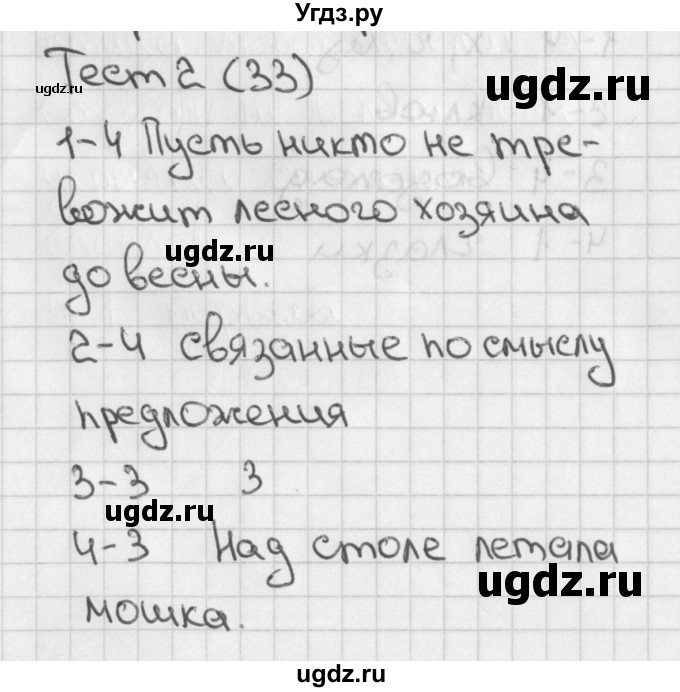 Угдз.ру
Тест 2 (33)
ugdz.ru
ugdz.ru
1-4 Пусть никто не тре-
вожит лесного хозяина
ugdz.ru
до весны.
2-4 связанные по смыслу
ugdz.ru
предложения
3-3 3
ugdz.ru
4-3 Над столе летала
ugdz.ru
мошка.
ugdz.ru
ugdz.ru